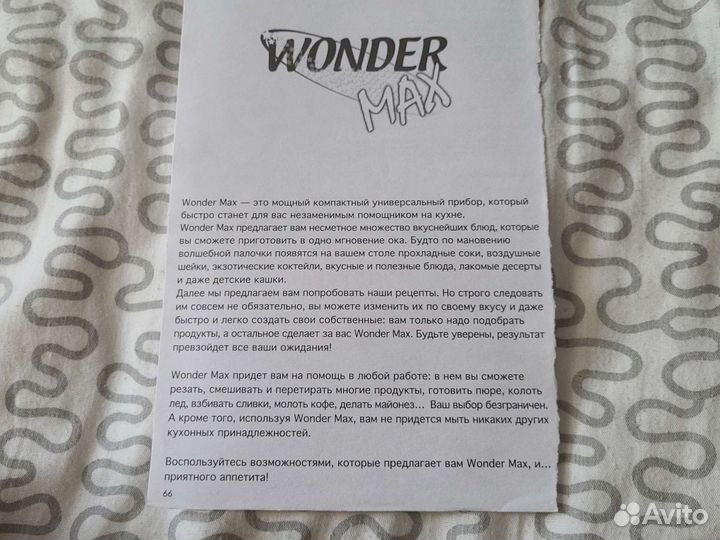 WONDER
MAX
Wonder Max — это мощный компактный универсальный прибор, который
быстро станет для вас незаменимым помощником на кухне.
Wonder Max предлагает вам несметное множество вкуснейших блюд, которые
вы сможете приготовить в одно мгновение ока. Будто по мановению
волшебной палочки появятся на вашем столе прохладные соки, воздушные
шейки, экзотические коктейли, вкусные и полезные блюда, лакомые десерты
и даже детские кашки.
Далее мы предлагаем вам попробовать наши рецепты. Но строго следовать
им совсем не обязательно, вы можете изменить их по своему вкусу и даже
быстро и легко создать свои собственные: вам только надо подобрать
продукты, а остальное сделает за вас Wonder Max. Будьте уверены, результат
превзойдет все ваши ожидания!
Wonder Max придет вам на помощь в любой работе: в нем вы сможете
резать, смешивать и перетирать многие продукты, готовить пюре, колоть
лед, взбивать сливки, молоть кофе, делать майонез... Ваш выбор безграничен.
А кроме того, используя Wonder Max, вам не придется мыть никаких других
кухонных принадлежностей.
Воспользуйтесь возможностями, которые предлагает вам Wonder Max, и...
приятного аппетита!
66
Avito